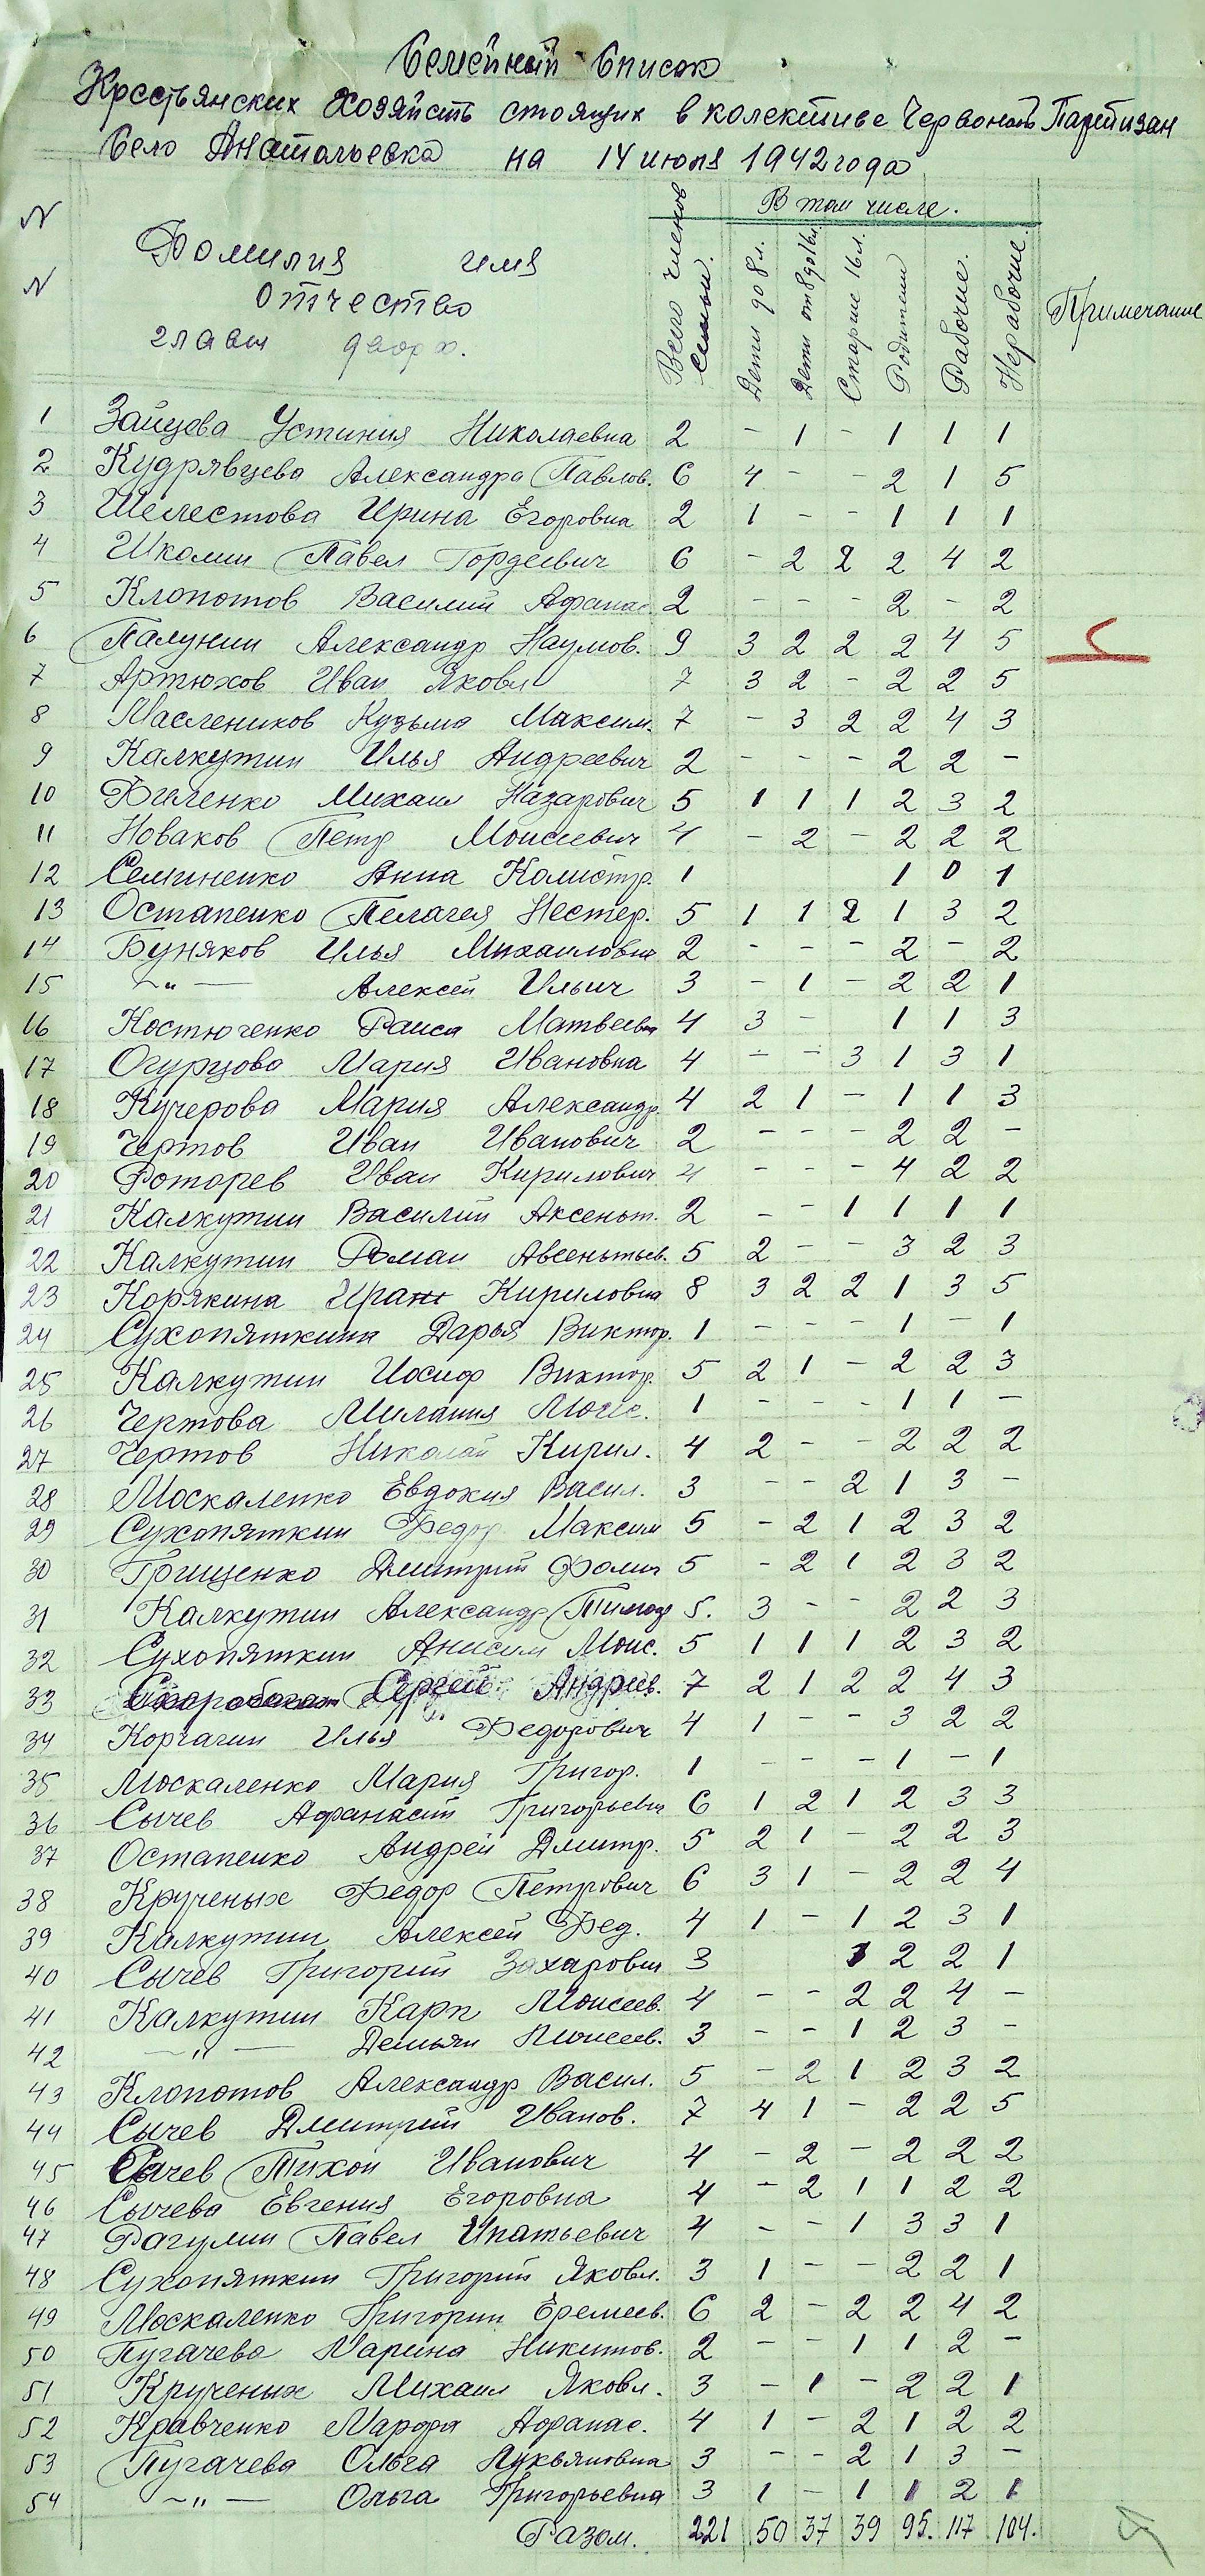 Семейный Список
Крестьянских Хозяйств стоящих в колективе Червоный Партизан
Село Анатольевка на 14 июля 1942 года
N N Фомилия имя Отчество главы двора. Всего членов семьи. В том числе. Дети до 8 л. Дети от 8 до 16 л. Старше 16 л. Родители Рабочие. Нерабочие. Примечание
1 Зайцева Устиния Николаевна 2 - 1 - 1 1 1
2 Кудрявцева Александра Павлов. 6 4 - - 2 1 5
3 Шелестова Ирина Егоровна 2 1 - - 1 1 1
4 Школин Павел Гордеевич 6 - 2 2 2 4 2
5 Клопотов Василий Афанас. 2 - - - 2 - 2
6 Палунин Александр Наумов. 9 3 2 2 2 4 5
7 Артюхов Иван Яковл 7 3 2 - 2 2 5
8 Маслеников Кузьма Максим. 7 - 3 2 2 4 3
9 Калкутин Илья Андреевич 2 - - - 2 2 -
10 Филенко Михаил Назарович 5 1 1 1 2 3 2
11 Новаков Петр Моисеевич 4 - 2 - 2 2 2
12 Семиненко Анна Калистр. 1 1 0 1
13 Остапенко Пелагея Нестер. 5 1 1 2 1 3 2
14 Буняков Илья Михаилович 2 - - - 2 - 2
15 -"- Алексей Ильич 3 - 1 - 2 2 1
16 Костюченко Раиса Матвеевна 4 3 - 1 1 3
17 Огурцова Мария Ивановна 4 - - 3 1 3 1
18 Кучерова Мария Александр. 4 2 1 - 1 1 3
19 Чертов Иван Иванович 2 - - - 2 2 -
20 Роторев Иван Кирилович 4 - - - 4 2 2
21 Калкутин Василий Аксеньт. 2 - - 1 1 1 1
22 Калкутин Роман Авсентьев. 5 2 - - 3 2 3
23 Корякина Кириловна 8 3 2 2 1 3 5
24 Сухопяткина Дарья Виктор. 1 - - - 1 - 1
25 Калкутин Иосиф Виктор. 5 2 1 - 2 2 3
26 Чертова Милания Моис. 1 - - - 1 1 -
27 Чертов Николай Кирил. 4 2 - - 2 2 2
28 Москаленко Евдокия Васил. 3 - - 2 1 3 -
29 Сухопяткин Федор Максим 5 - 2 1 2 3 2
30 Грищенко Дмитрий Фомич 5 - 2 1 2 3 2
31 Калкутин Александр Тимоф 5. 3 - - 2 2 3
32 Сухопяткин Анисим Моис. 5 1 1 1 2 3 2
33 Сергей Андреев. 7 2 1 2 2 4 3
34 Корчагин Илья Федорович 4 1 - - 3 2 2
35 Москаленко Мария Григор. 1 - - - 1 - 1
36 Сычев Афанасий Григорьевич 6 1 2 1 2 3 3
37 Остапенко Андрей Дмитр. 5 2 1 - 2 2 3
38 Крученых Федор Петрович 6 3 1 - 2 2 4
39 Калкутин Алексей Фед. 4 1 - 1 2 3 1
40 Сычев Григорий Захарович 3 1 2 2 1
41 Калкутин Карп Моисеев. 4 - - 2 2 4 -
42 -"- Демьян Моисеев. 3 - - 1 2 3 -
43 Клопотов Александр Васил. 5 - 2 1 2 3 2
44 Сычев Дмитрий Иванов. 7 4 1 - 2 2 5
45 Сычев Тихон Иванович 4 - 2 - 2 2 2
46 Сычева Евгения Егоровна 4 - 2 1 1 2 2
47 Рагулин Павел Ипатьевич 4 - - 1 3 3 1
48 Сухопяткин Григорий Яковл. 3 1 - - 2 2 1
49 Москаленко Григорий Еремеев. 6 2 - 2 2 4 2
50 Пугачева Марина Никитов. 2 - - 1 1 2 -
51 Крученых Михаил Яковл. 3 - 1 - 2 2 1
52 Кравченко Марфа Афанас. 4 1 - 2 1 2 2
53 Пугачева Ольга Лукьяновна 3 - - 2 1 3 -
54 -"- Ольга Григорьевна 3 1 - 1 1 2 1
Разом. 221 50 37 39 95. 117 104.